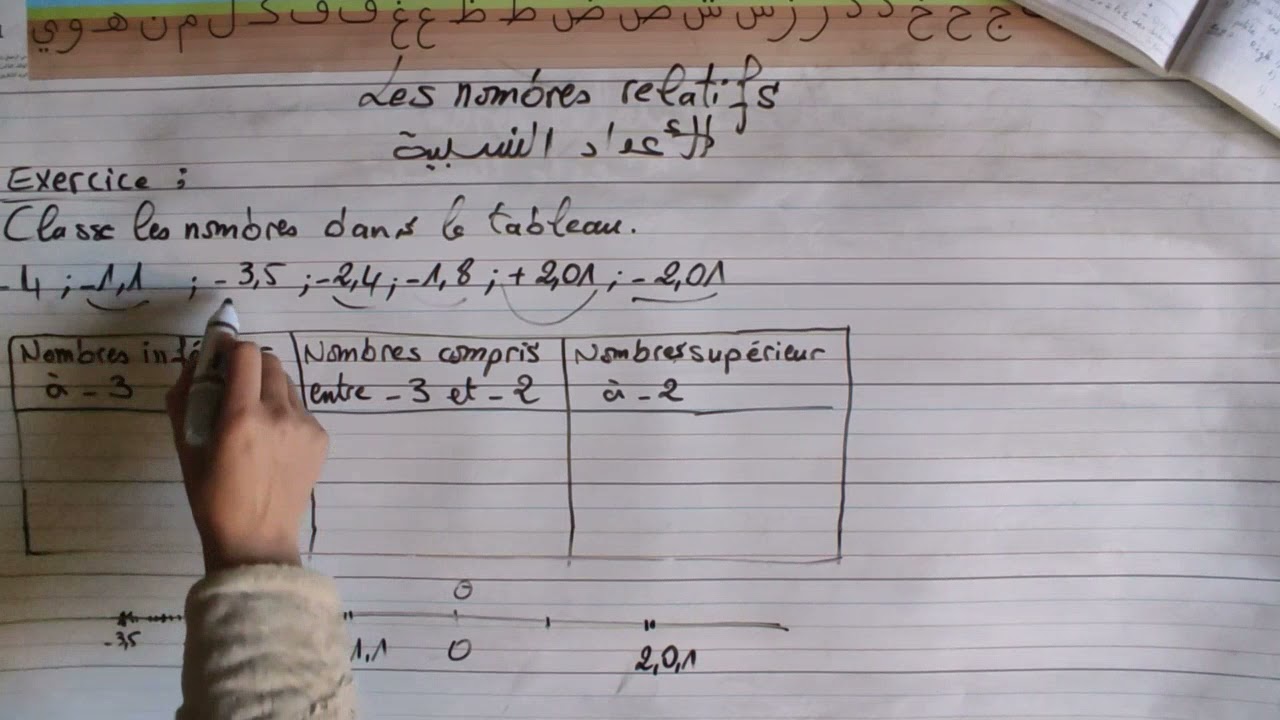 ج ح خ د ذ ر ز س ش ص ض ط ظ ع غ ف ق ك ل م ن ه و ي
Les nombres relatifs
الأعداد النسبية
Exercice :
Classe les nombres dans le tableau.
- 4 ; -1,1 ; - 3,5 ; -2,4 ; -1,8 ; + 2,01 ; - 2,01
Nombres
à - 3
Nombres compris
entre - 3 et - 2
Nombres supérieur
à - 2
0
-3,5 1,1 0 2,0,1